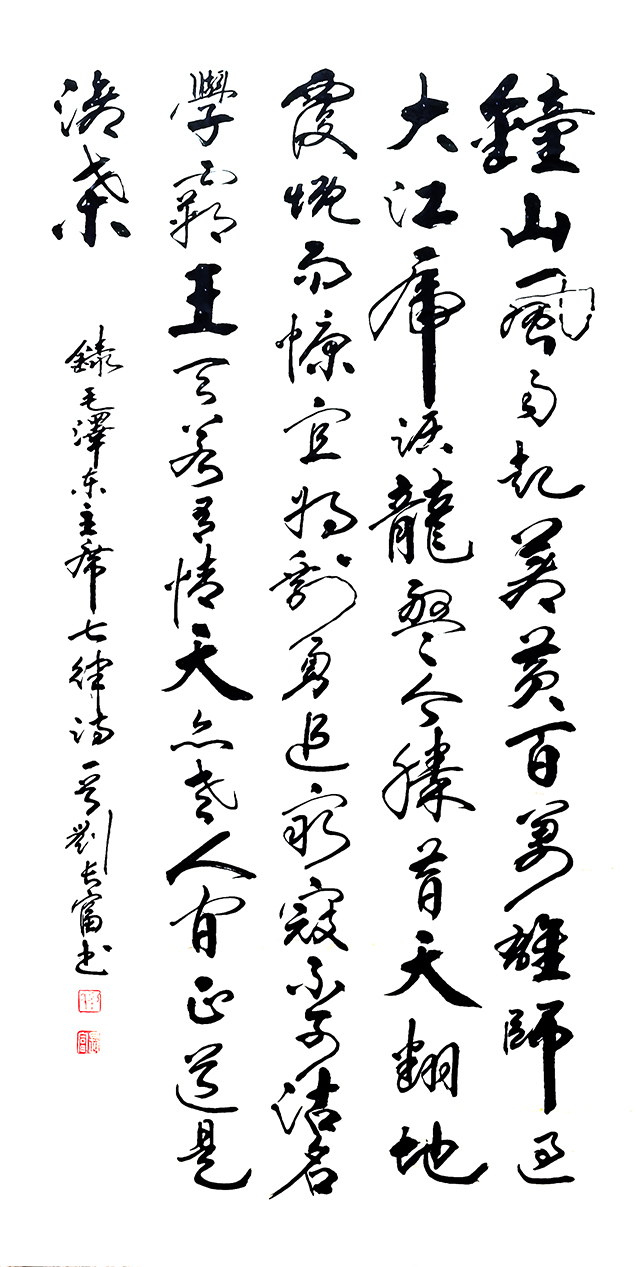 鐘山風雨起蒼黃百萬雄師過
大江虎踞龍盤今勝昔天翻地
覆慨而慷宜將剩勇追窮寇不可沽名
學霸王天若有情天亦老人間正道是
滄桑
錄毛澤东主席七律詩一首劉长富书